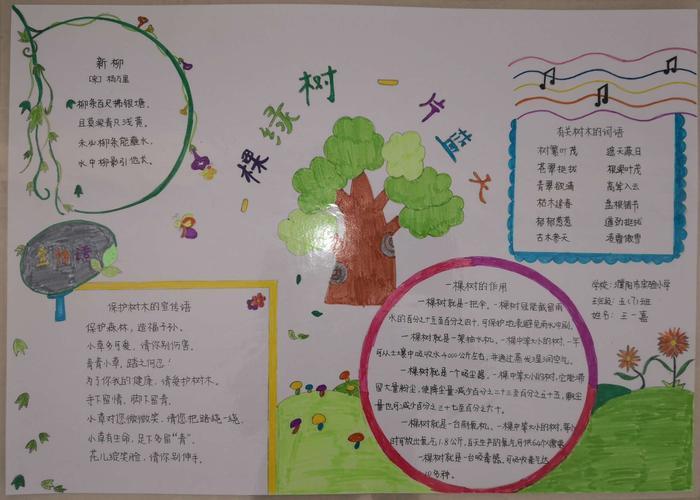 新柳
[宋] 杨万里
柳条百尺拂银塘,
且莫深青只浅黄。
未必柳条能蘸水,
水中柳影引他长。
一棵绿树 一片蓝天
有关树木的词语
树繁叶茂 遮天蔽日
苍翠挺拔 根深叶茂
青翠欲滴 高耸入云
枯木逢春 盘根错节
郁郁葱葱 遒劲挺拔
古木参天 凌霜傲雪
学校:濮阳市实验小学
班级:五(7)班
姓名:王一嘉
宣传语
保护树木的宣传语
保护森林,造福子孙。
小草多可爱,请你别伤害。
青青小草,踏之何忍!
为了你我的健康,请爱护树木。
手下留情,脚下留青。
小草对您微微笑,请您把路绕一绕。
小草有生命,足下多留“青”。
花儿绽笑脸,请你别伸手。
一棵树的作用
一棵树就是一把伞。一棵树冠能截留雨
水的百分之十五至百分之四十,可保护地表避免雨水冲刷。
一棵树就是一架抽水机。一棵中等大小的树,一年
可从土壤中吸收水4000公斤左右,并通过蒸发湿润空气。
一棵树就是一个吸尘器。一棵中等大小的树,它能滞
留大量粉尘,使降尘量减少百分之二十三至百分之五十二,飘尘
量也可减少百分之三十七至百分之六十。
一棵树就是一台制氧机。一棵中等大小的树,每小
时可放出氧气1.8公斤,白天生产的氧气可供64个
一棵树就是一台吸毒器。可吸收毒气达
种。